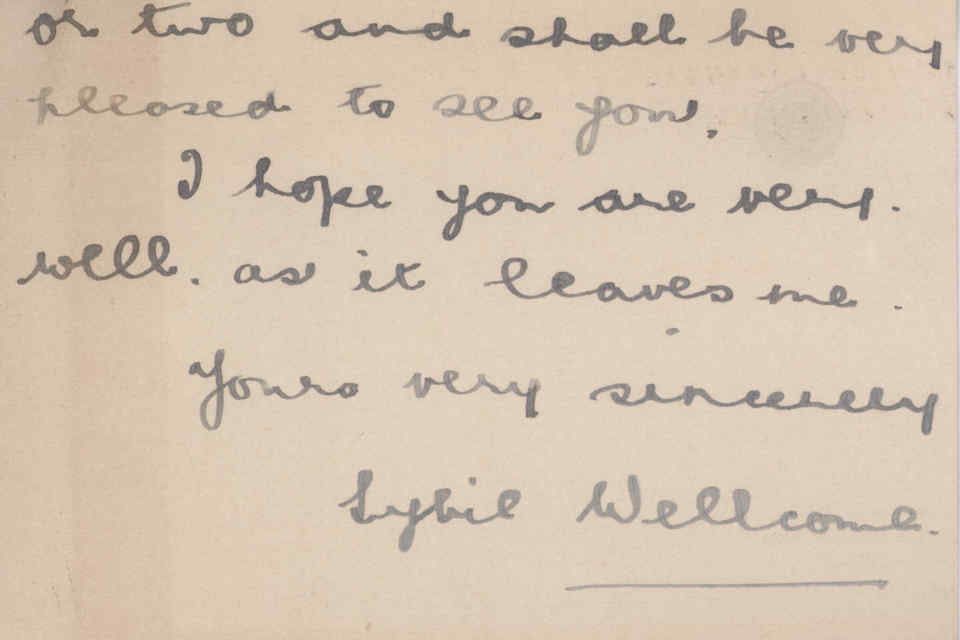 or two and shall be very
pleased to see you.
I hope you are very.
well. as it leaves me.
Yours very sincerely
Sybil Wellcome.